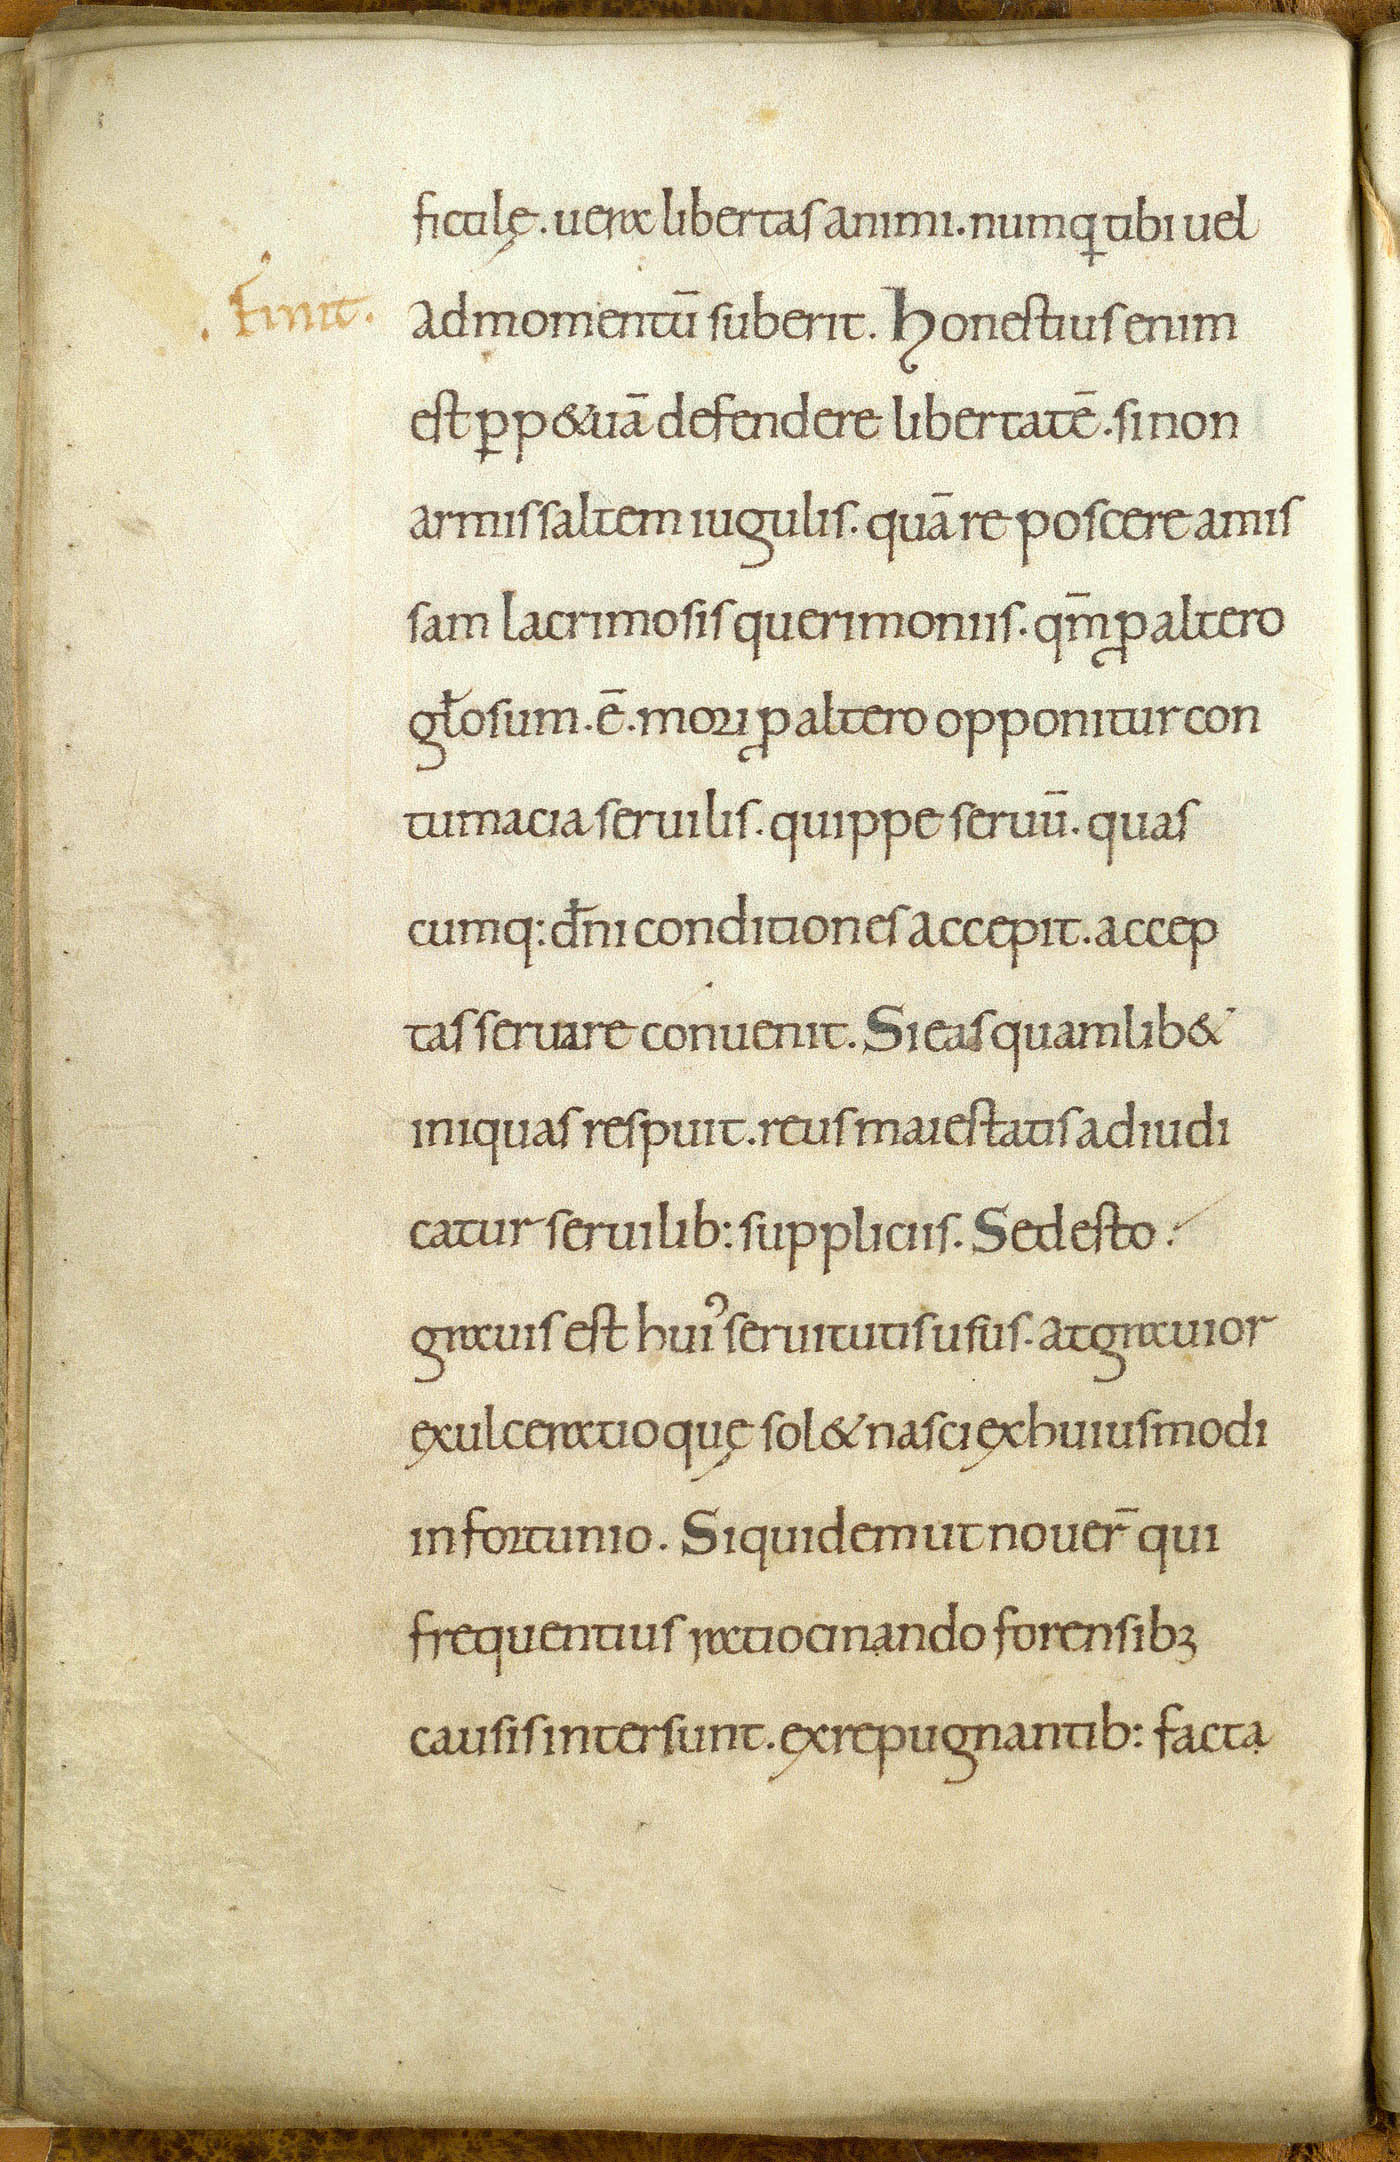 fictilę. uera libertas animi. numꝗ tibi uel
. Finit.
ad momentū suberit. Honestius enim
est ꝑp&uā defendere libertatē. si non
armis saltem iugulis. quā re poscere amis
sam lacrimosis querimoniis. qm̄ ꝓ altero
gl̄osum. ē. mori ꝓ altero opponitur con
tumacia seruilis. quippe seruū. quas
cumq: dn̄i conditiones accepit. accep
tas seruare conuenit. Si eas quamlib&
iniquas respuit. reus maiestatis adiudi
catur seruilib: suppliciis. Sed esto.
grauis est huiꝰ seruitutis usus. at grauior
exulceratio quę sol& nasci ex huiusmodi
infortunio. Siquidem ut nouer̄ qui
frequentius ratiocinando forensibꝫ
causis intersunt. ex repugnantib: facta